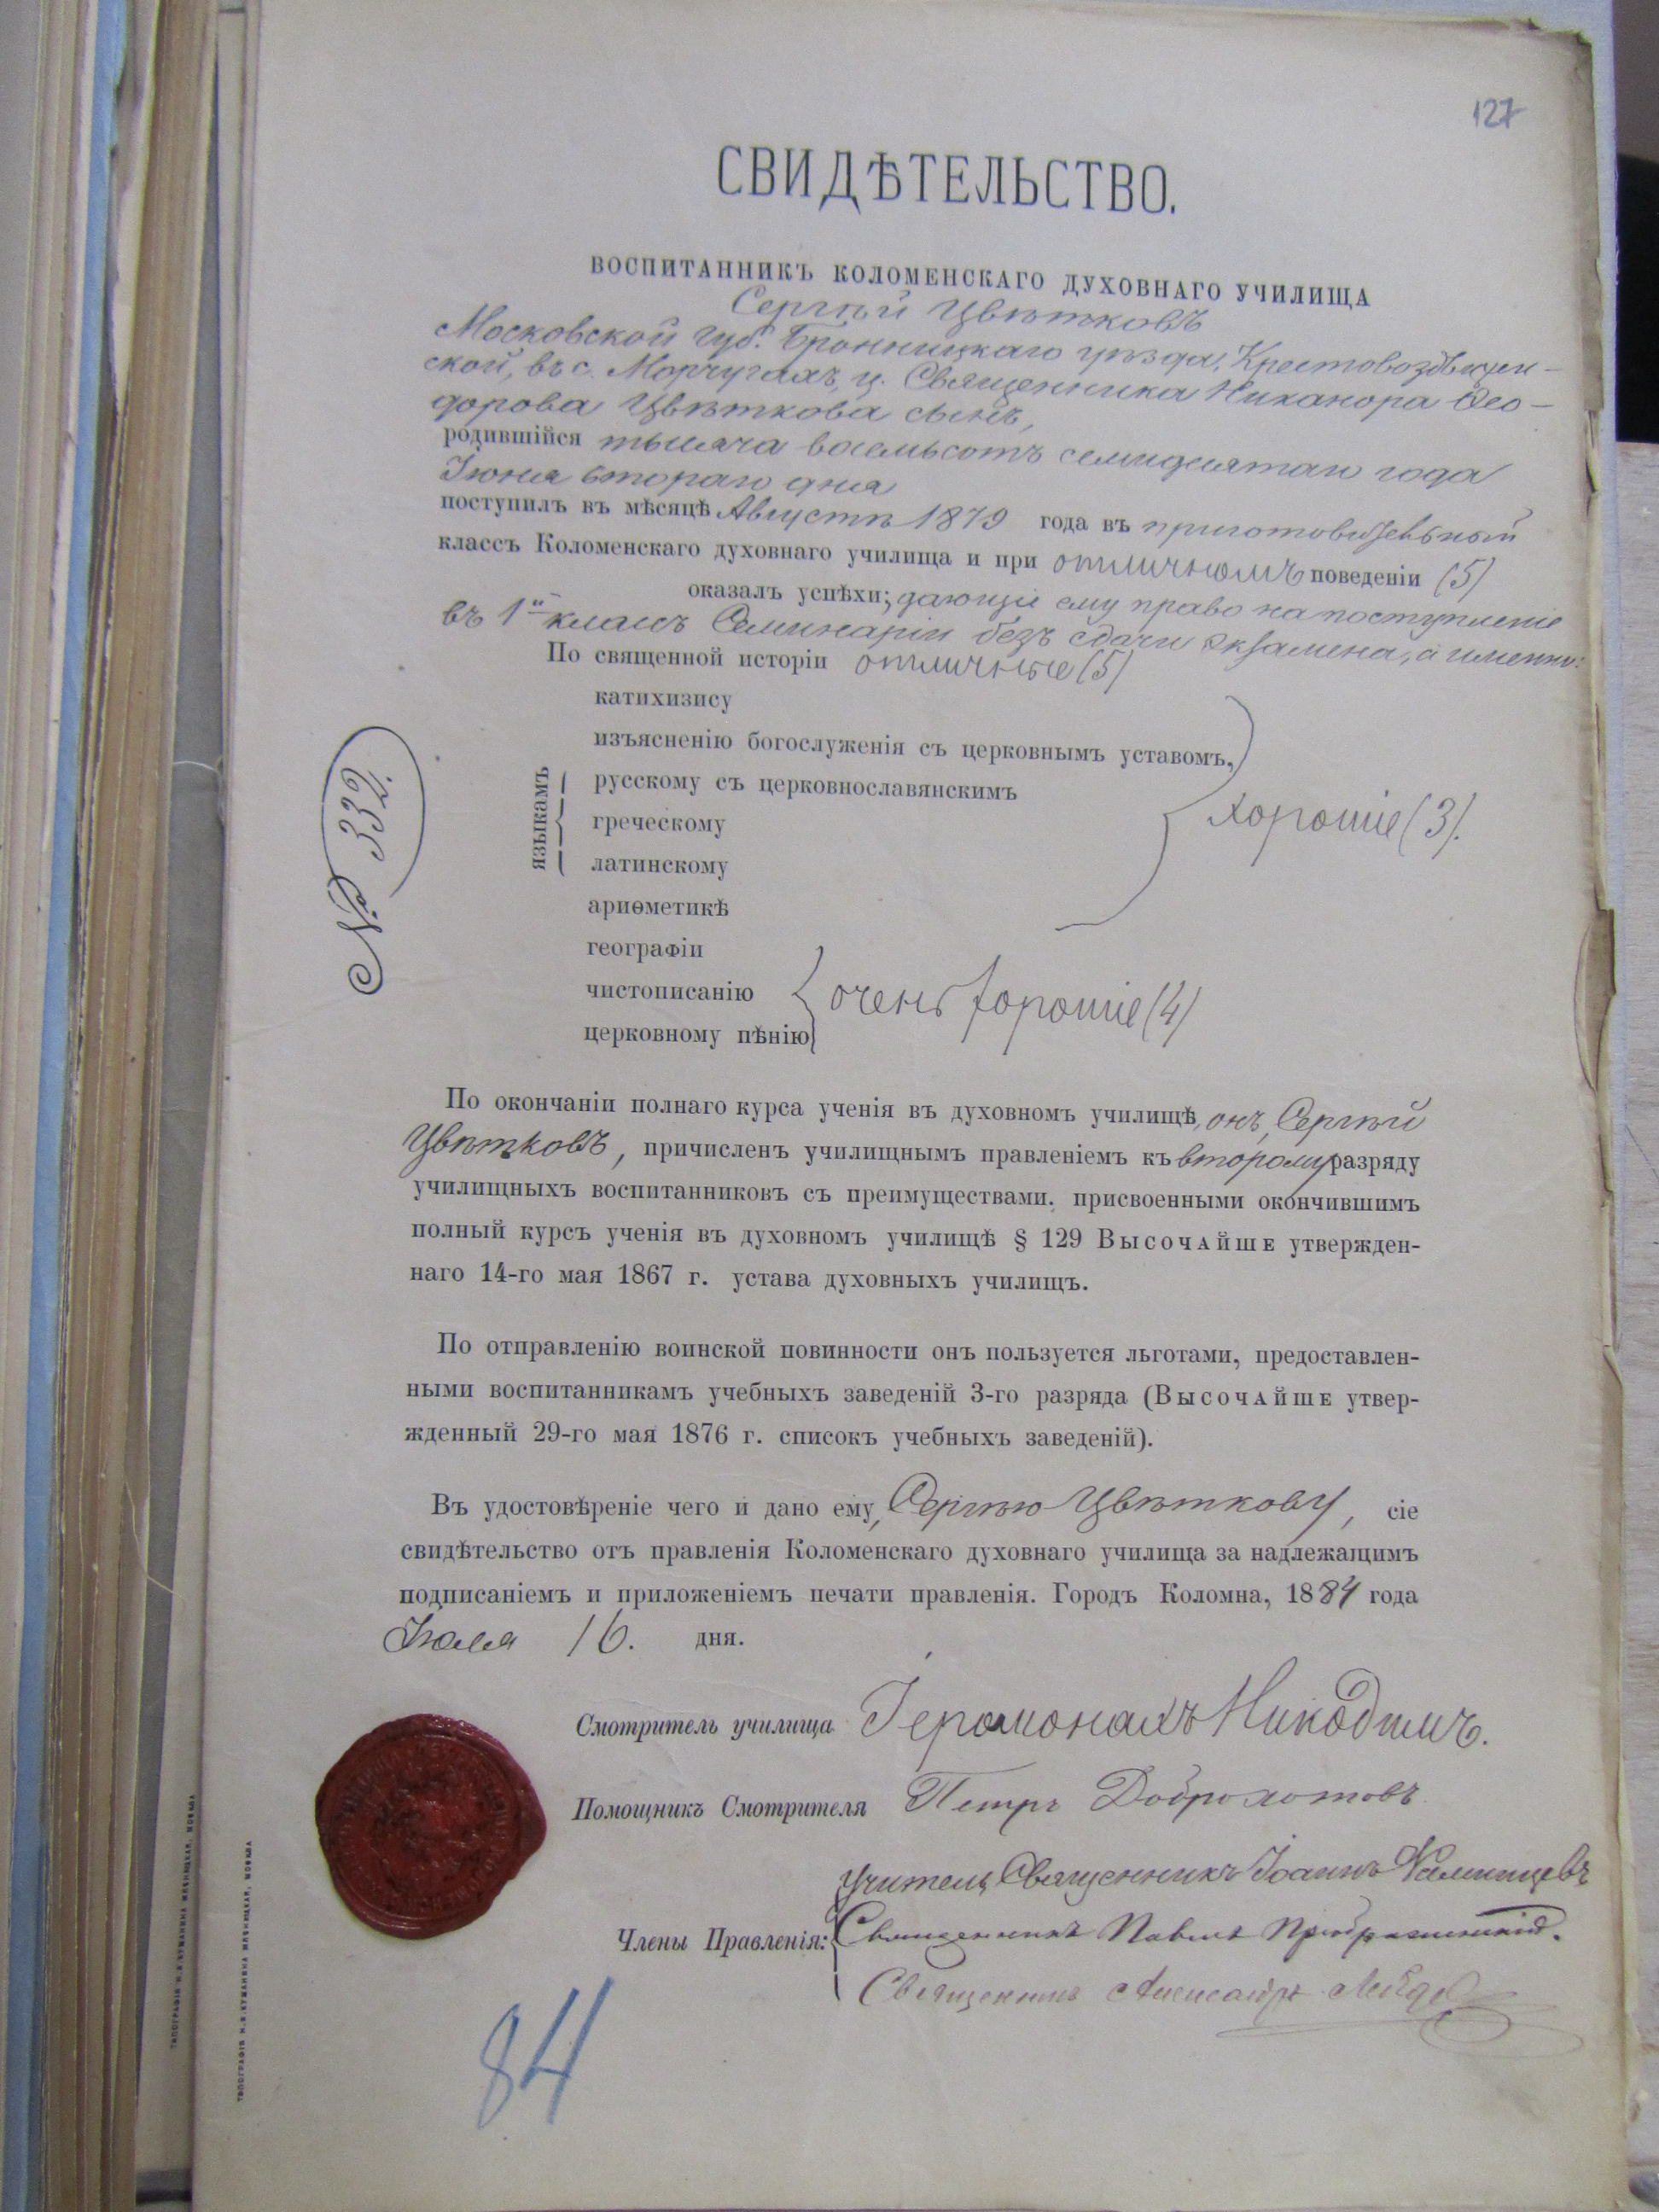 127
СВИДѢТЕЛЬСТВО.
ВОСПИТАННИКЪ КОЛОМЕНСКАГО ДУХОВНАГО УЧИЛИЩА
Сергѣй Цвѣтковъ
Московской губ. Бронницкаго уѣзда, Крестовоздвижен-
ской, въ с. Марчугахъ, ц. Священника Никанора Ѳео-
дорова Цвѣткова сынъ,
родившійся тысяча восемьсотъ семидесятаго года
Іюня втораго дня
поступилъ въ мѣсяцѣ Августѣ 1879 года въ приготовительный
классъ Коломенскаго духовнаго училища и при отличномъ поведеніи (5)
оказалъ успѣхи; дающіе ему право на поступленіе
въ 1й классъ Семинаріи безъ сдачи экзамена, а именно:
По священной исторіи отличные (5)
катихизису
изъясненію богослуженія съ церковнымъ уставомъ,
языкамъ
русскому съ церковнославянскимъ
греческому
хорошіе (3).
латинскому
ариѳметикѣ
географіи
чистописанію очень хорошіе (4)
церковному пѣнію
№ 332.
По окончаніи полнаго курса ученія въ духовномъ училищѣ, онъ, Сергѣй
Цвѣтковъ, причисленъ училищнымъ правленіемъ къ второму разряду
училищныхъ воспитанниковъ съ преимуществами, присвоенными окончившимъ
полный курсъ ученія въ духовномъ училищѣ § 129 Высочайше утвержден-
наго 14-го мая 1867 г. устава духовныхъ училищъ.
По отправленію воинской повинности онъ пользуется льготами, предоставлен-
ными воспитанникамъ учебныхъ заведеній 3-го разряда (Высочайше утвер-
жденный 29-го мая 1876 г. списокъ учебныхъ заведеній).
Въ удостовѣреніе чего и дано ему, Сергѣю Цвѣткову, сіе
свидѣтельство отъ правленія Коломенскаго духовнаго училища за надлежащимъ
подписаніемъ и приложеніемъ печати правленія. Городъ Коломна, 1884 года
Іюля 16. дня.
Смотритель училища Іеромонахъ Никодимъ.
Помощникъ Смотрителя Петръ Доброхотовъ
Учитель Священникъ Іоаннъ
Члены Правленія: Священникъ Павелъ Преображенскій.
Священникъ Александръ
84